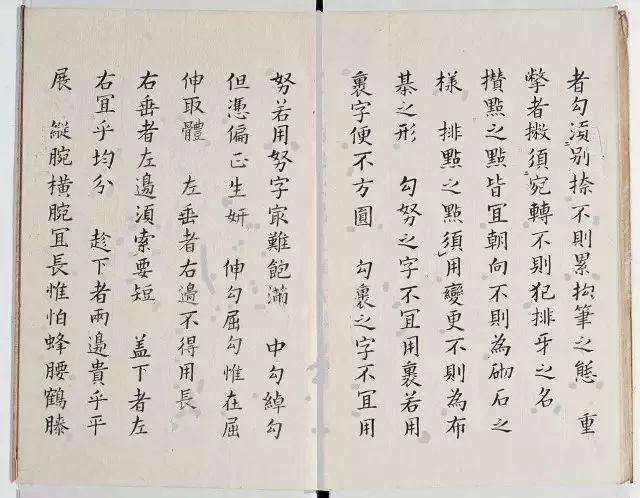 者勾須別捺不則累拘筆之態　重
撆者撇須宛轉不則犯排牙之名
攢點之點皆冝朝向不則為砌石之
樣　排點之點須用變更不則為布
棊之形　勾努之字不冝用裹若用
裹字便不方圓　勾裹之字不冝用
努若用努字㝡難飽滿　中勾綽勾
但憑偏正生妍　伸勾屈勾惟在屈
伸取體　左垂者右邉不得用長
右垂者左邉須索要短　盖下者左
右冝乎均分　趁下者兩邉貴乎平
展　縱腕橫腕冝長惟怕蜂腰鶴膝